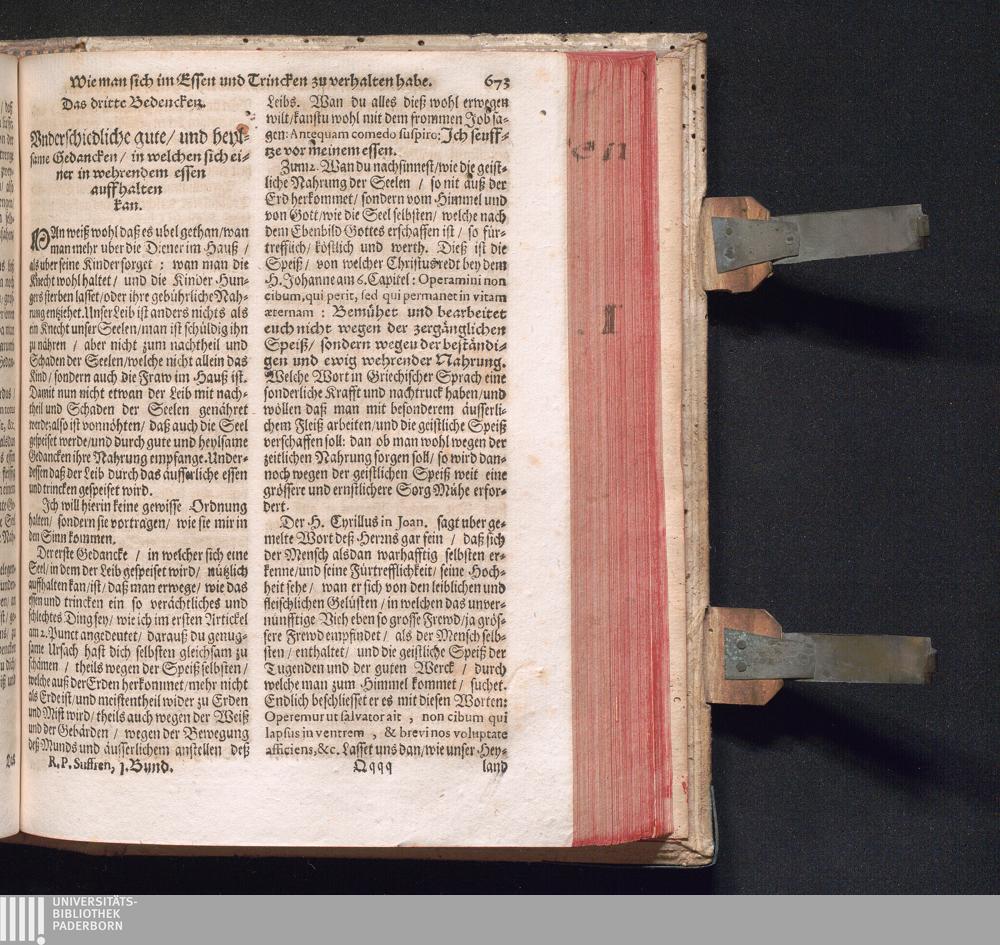 Wie man sich im Essen und Trincken zu verhalten habe. 673
Das dritte Bedencken.
Vnderschiedliche gute/ und heyl-
same Gedancken / in welchen sich ei-
ner in wehrendem essen
auffhalten
kan.
MAn weiß wohl daß es ubel gethan/wan
man mehr uber die Diener im Hauß /
als uber seine Kinder sorget : wan man die
Knecht wohl haltet / und die Kinder Hun-
gers sterben lasset/oder ihre gebührliche Nah-
rung entziehet. Unser Leib ist anders nichts als
ein Knecht unser Seelen/man ist schüldig ihn
zu nähren / aber nicht zum nachtheil und
Schaden der Seelen/welche nicht allein das
Kind/ sondern auch die Fraw im Hauß ist.
Damit nun nicht etwan der Leib mit nach-
theil und Schaden der Seelen genähret
werde; also ist vonnöhten/ daß auch die Seel
gespeiset werde/und durch gute und heylsame
Gedancken ihre Nahrung empfange. Under-
dessen daß der Leib durch das äusserliche essen
und trincken gespeiset wird.
Ich will hierin keine gewisse Ordnung
halten/ sondern sie vortragen/ wie sie mir in
den Sinn kommen.
Der erste Gedancke / in welcher sich eine
Seel/ in dem der Leib gespeiset wird/ nützlich
auffhalten kan/ist/ daß man erwege/ wie das
essen und trincken ein so verächtliches und
schlechtes Ding sey/ wie ich im ersten Artickel
am 2. Punct angedeutet/ darauß du genug-
same Ursach hast dich selbsten gleichsam zu
schämen / theils wegen der Speiß selbsten/
welche auß der Erden herkommet/mehr nicht
als Erde ist/und meistentheil wider zu Erden
und Mist wird/ theils auch wegen der Weiß
und der Gebärden / wegen der Bewegung
deß Munds und äusserlichem anstellen deß
R. P. Suffren, 1. Bund.
Leibs. Wan du alles dieß wohl erwegen
wilt/kanstu wohl mit dem frommen Job sa-
gen: Antequam comedo suspiro; Ich seuff-
tze vor meinem essen.
Zum 2. Wan du nachsinnest/wie die geist-
liche Nahrung der Seelen / so nit auß der
Erd herkommet/ sondern vom Himmel und
von Gott/wie die Seel selbsten/ welche nach
dem Ebenbild Gottes erschaffen ist/ so für-
trefflich/ köstlich und werth. Dieß ist die
Speiß/ von welcher Christus redt bey dem
H. Johanne am 6. Capitel: Operamini non
cibum, qui perit, sed qui permanet in vitam
æternam : Bemühet und bearbeitet
euch nicht wegen der zergänglichen
Speiß/ sondern wegeu der beständi-
gen und ewig wehrender Nahrung.
Welche Wort in Griechischer Sprach eine
sonderliche Krafft und nachtruck haben/und
wöllen daß man mit besonderem äusserli-
chem Fleiß arbeiten/und die geistliche Speiß
verschaffen soll: dan ob man wohl wegen der
zeitlichen Nahrung sorgen soll/ so wird dan-
noch wegen der geistlichen Speiß weit eine
grössere und ernstlichere Sorg Mühe erfor-
dert.
Der H. Cyrillus in Joan. sagt uber ge-
melte Wort deß Herzns gar fein / daß sich
der Mensch alsdan warhafftig selbsten er-
kenne/und seine Fürtrefflichkeit/ seine Hoch-
heit sehe/ wan er sich von den leiblichen und
fleischlichen Gelüsten/ in welchen das unver-
nünfftige Vieh eben so grosse Frewd/ja grös-
sere Frewd empfindet/ als der Mensch selb-
sten/ enthaltet/ und die geistliche Speiß der
Tugenden und der guten Werck / durch
welche man zum Himmel kommet/ suchet.
Endlich beschliesset er es mit diesen Worten:
Operemur ut salvator ait , non cibum qui
lapsus in ventrem , & brevi nos voluptate
afficiens, &c. Lasset uns dan/wie unser Hey-
Qqqq land
I
UNIVERSITÄTS-
BIBLIOTHEK
PADERBORN